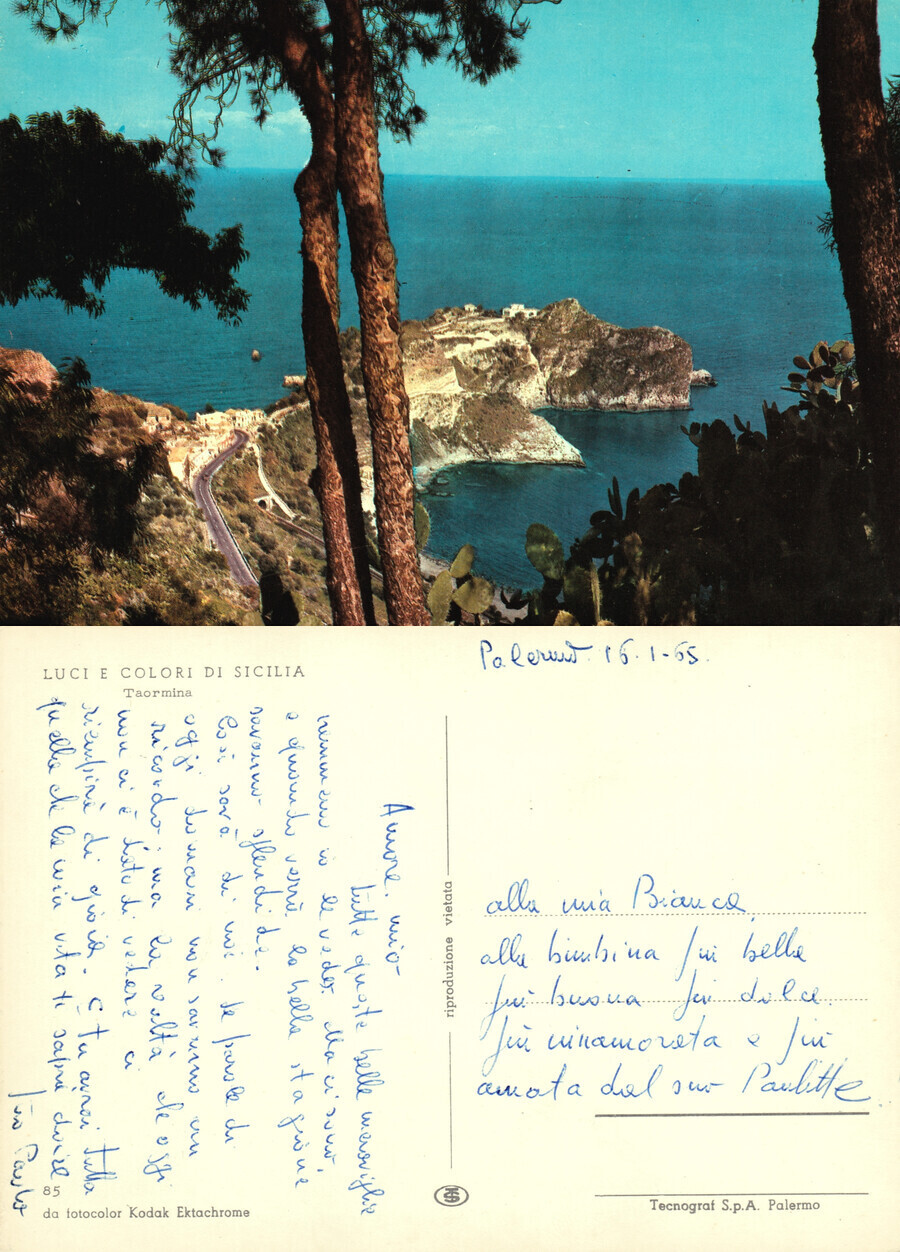 LUCI E COLORI DI SICILIA
Taormina
Palermo. 16.1-65.
Amore, mio
tutte queste belle meraviglie
nemmeno io le vedo. Ma ci sono,
e quando verrà la bella stagione
saranno splendide.
Così sarà di noi. Le parole di
oggi domani non saranno un
ricordo: ma la realtà che oggi
non ci è dato di vedere ci
riempirà di gioia. E tu avrai tutta
quella che la mia vita ti saprà dare
tuo Paolo
riproduzione vietata
alla mia Bianca,
alla bimbina più bella
più buona più dolce.
più innamorata e più
amata dal suo Paulitte.
85
da fotocolor Kodak Ektachrome
Tecnograf S.p.A. Palermo